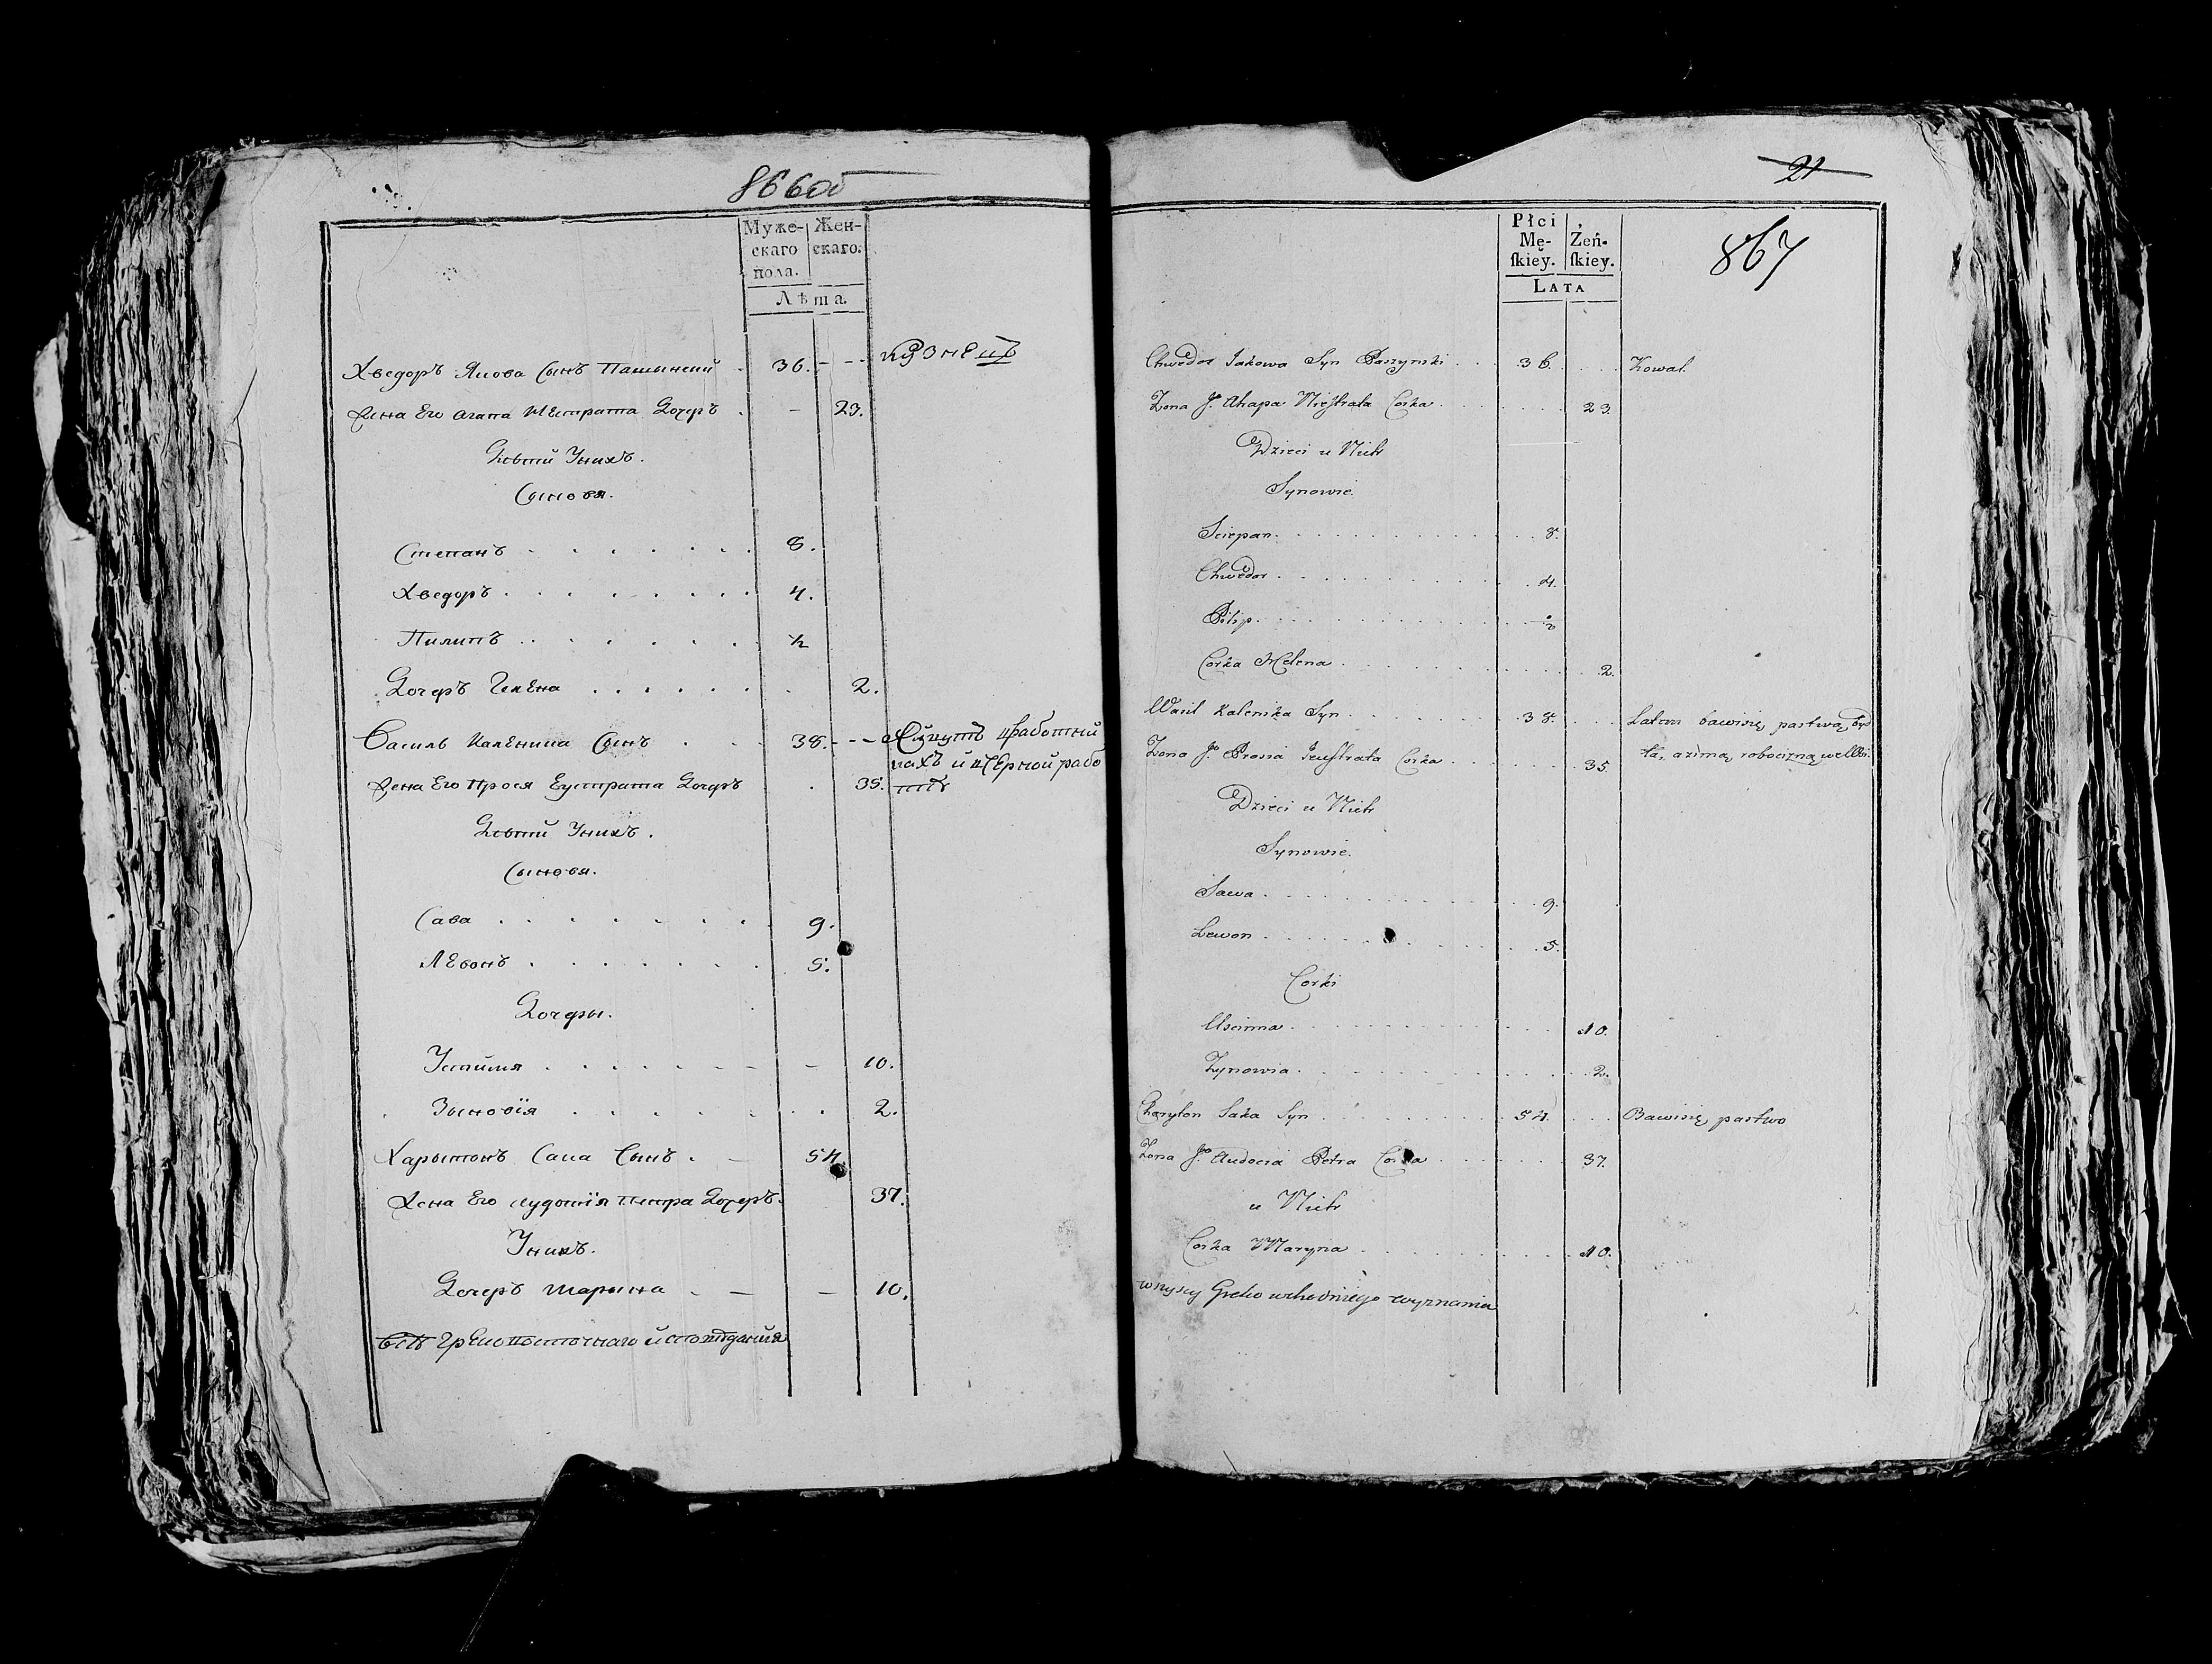 866об
Муже- Жен-
скаго скаго.
пола.
Лѣта.
Хведоръ Якова Сынъ Пашинский . 36. - - - кузнецъ
Жена Его Агапа Нестрата Дочеръ . - 23.
Дѣти Унихъ.
Сыновя.
Степанъ . . . . . . . 8.
Хведоръ . . . . . . . 4.
Пилипъ . . . . . . . ½
Дочеръ Гелена . . . . . . . 2.
Василь Каленика Сынъ . . 38. - - -
Жена Его Прося Еустрата Дочеръ . 35.
Дѣти Унихъ.
Сыновя.
Сава . . . . . . . 9.
Левонъ . . . . . . . 5.
Дочеры.
Устимя . . . . . . - - 10.
Зыновія . . . . . . . 2.
Харытонъ Сака Сынъ . - 54.
Жена Его Аудотія Петра Дочеръ. 37.
Унихъ.
Дочеръ Марына . - - 10.
всѣ Греко восточнаго исповѣданія
21
Płci
Mę- Żeń-
ſkiey. ſkiey.
LATA
867
Chwedor Jakowa Syn Paszynski . . . 36. . . . Kowal.
Zona Jgo Ahapa Nieſtrata Corka . . . . . . . 23.
Dzieci u Nich
Synowie.
Sciepan . . . . . . . . . . 8.
Chwedor . . . . . . . . . . 4.
Pilip . . . . . . . . . . ½
Corka Helena . . . . . . . . . . 2.
Wasil Kalenika Syn . . . . . . 38. . . . Latem bawisię pastwą byd
Zona Jgo Prosia Jeuſtrata Corka . . . . . . 35. ła, a zimą robocizną
Dzieci u Nich
Synowie.
Sawa . . . . . . . . . . 9.
Lewon . . . . . . . . . . 5.
Corki
Uscimia . . . . . . . . . . 10.
Zynowia . . . . . . . . . . 2.
Charyton Saka Syn . . . . . . 54. . . . Bawisię pastwo
Zona Jgo Audocia Petra Corka . . . . . 37.
u Nich
Corka Maryna . . . . . . . . 10.
wszyscy Greko wschodniego wyznania